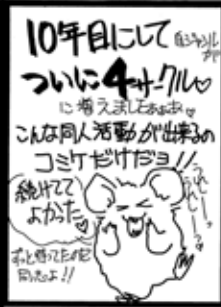 10年目にして 自ジャンルが
ついに4サークル♡
に増えましたぁぁぁ。
こんな同人活動が出来るの
コミケだけだヨ!!
続けてて
よかった♡
うれしーっ
うれしーっ
ずっと待ってたのだ
同志よ!!